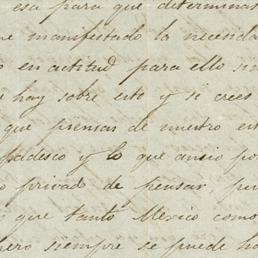 esa para que determinas
manifestado la necesida
en actitud para ello sin
hay sobre esto y si crees
que piensas de nuestro est
y lo que ansio por
privad de pensar, per
que tanto México como
pero siempre se puede ha